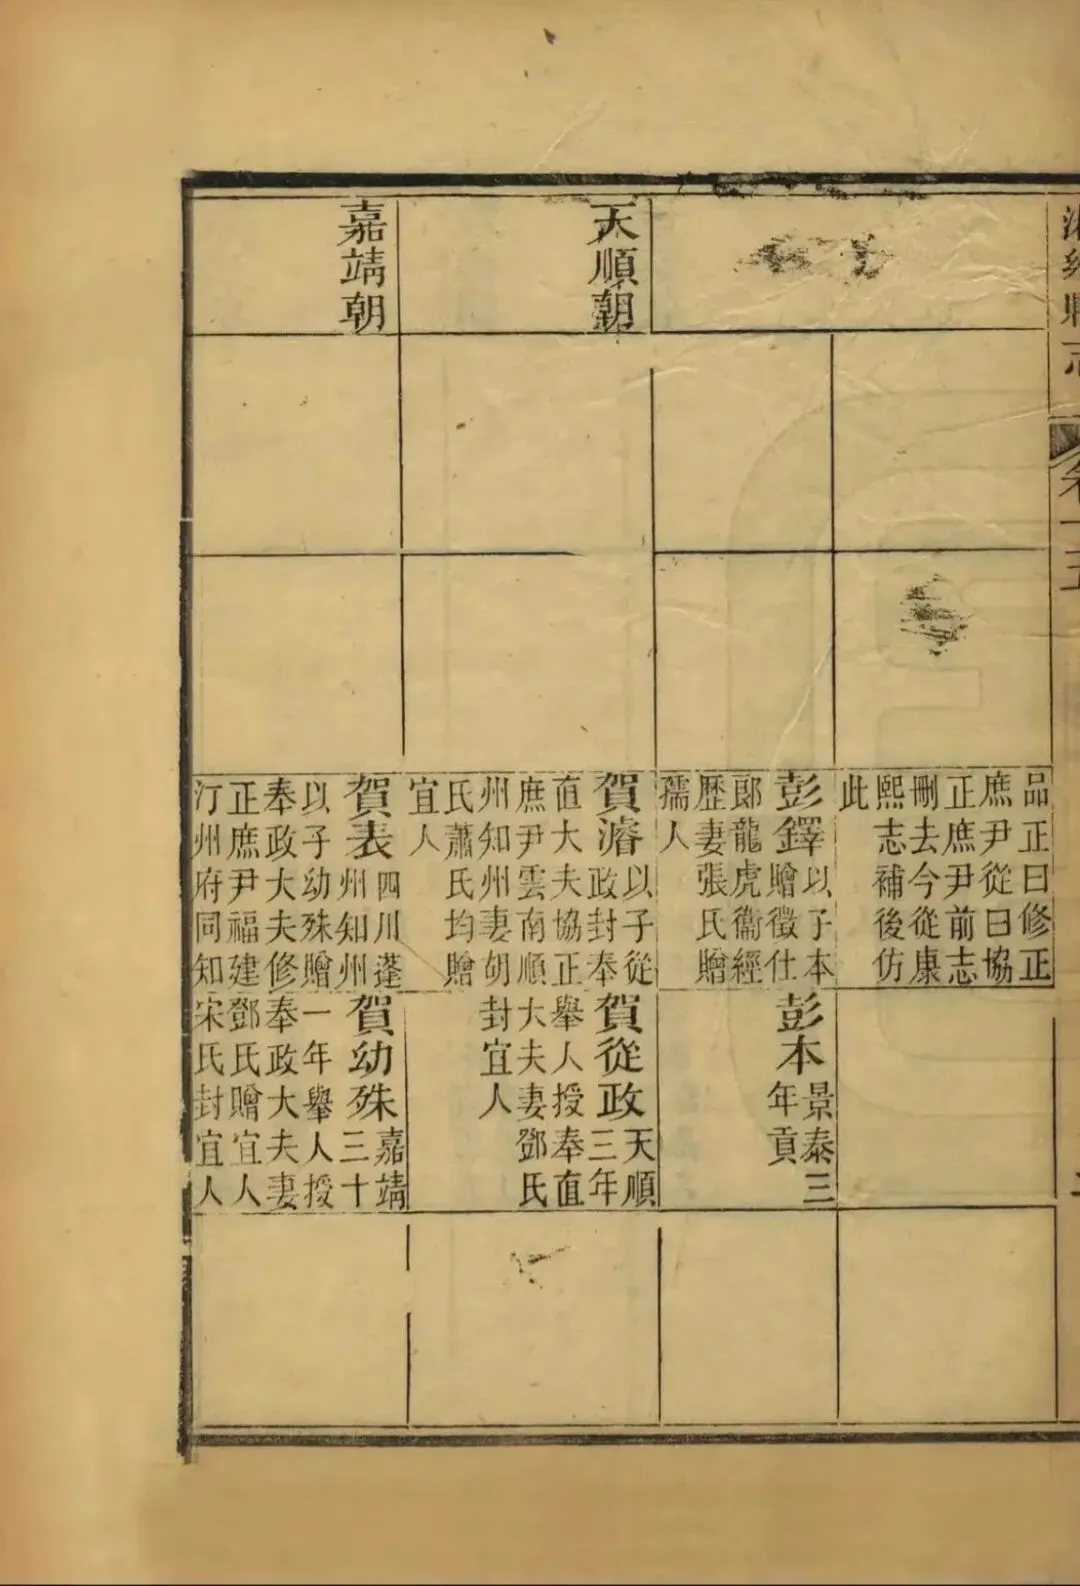 天順朝
嘉靖朝
品正曰修正
庶尹從曰協
正庶尹前志
刪去今從康
熙志補後仿
此
彭鐸以子本
贈徵仕
郎龍虎衞經
歷妻張氏贈
孺人
賀濬以子從
政封奉
直大夫協正
庶尹雲南順
州知州妻胡
氏蕭氏均贈
宜人
賀表四川蓬
州知州
以子幼殊贈
奉政大夫修
正庶尹福建
汀州府同知
彭本景泰三
年貢
賀從政天順
三年
舉人授奉直
大夫妻鄧氏
封宜人
賀幼殊嘉靖
三十
一年舉人授
奉政大夫妻
鄧氏贈宜人
宋氏封宜人